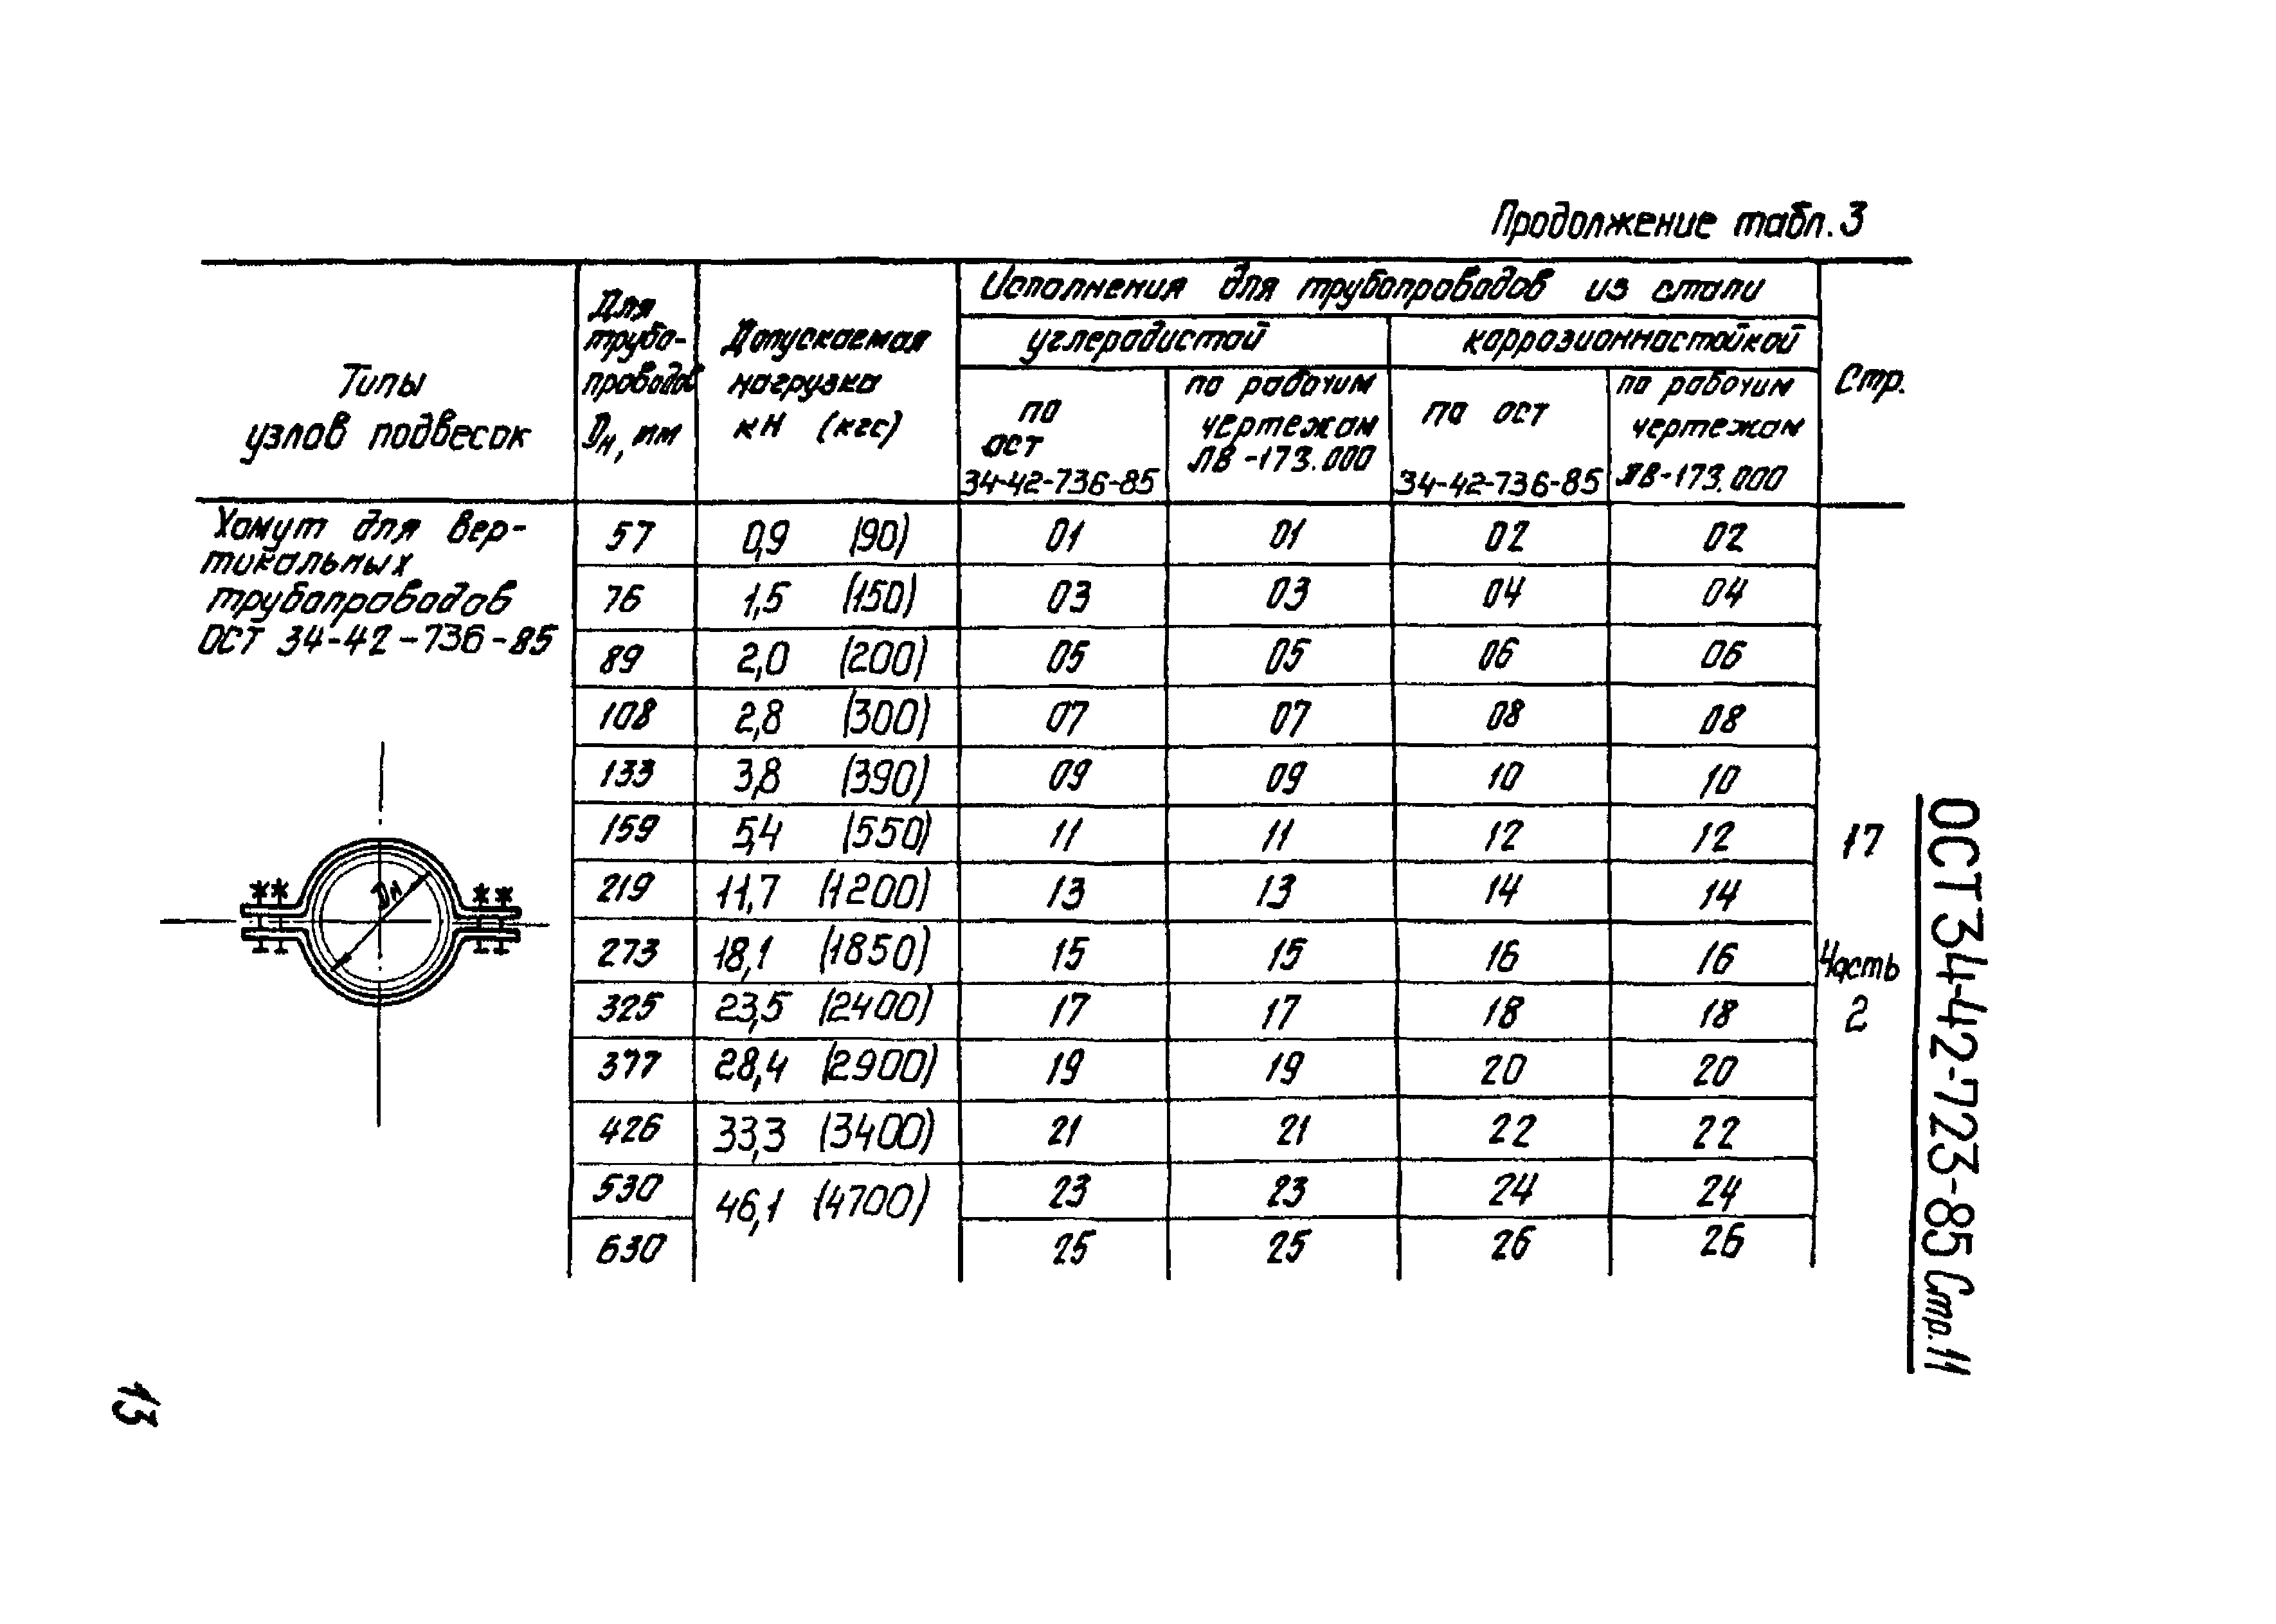 Продолжение табл. 3
Типы узлов подвесок
Для трубо-проводов Dн, мм
Допускаемая нагрузка кН (кгс)
Исполнения для трубопроводов из стали
углеродистой
коррозионностойкой
по ОСТ 34-42-736-85
по рабочим чертежам ЛВ-173.000
по ОСТ 34-42-736-85
по рабочим чертежам ЛВ-173.000
Стр.
Хомут для вер-
тикальных
трубопроводов
ОСТ 34-42-736-85
Dн
57 0,9 (90) 01 01 02 02
76 1,5 (150) 03 03 04 04
89 2,0 (200) 05 05 06 06
108 2,8 (300) 07 07 08 08
133 3,8 (390) 09 09 10 10
159 5,4 (550) 11 11 12 12
219 11,7 (1200) 13 13 14 14
273 18,1 (1850) 15 15 16 16
325 23,5 (2400) 17 17 18 18
377 28,4 (2900) 19 19 20 20
426 33,3 (3400) 21 21 22 22
530 46,1 (4700) 23 23 24 24
630 25 25 26 26
17
Часть
2
ОСТ 34-42-723-85 Стр. 11
13